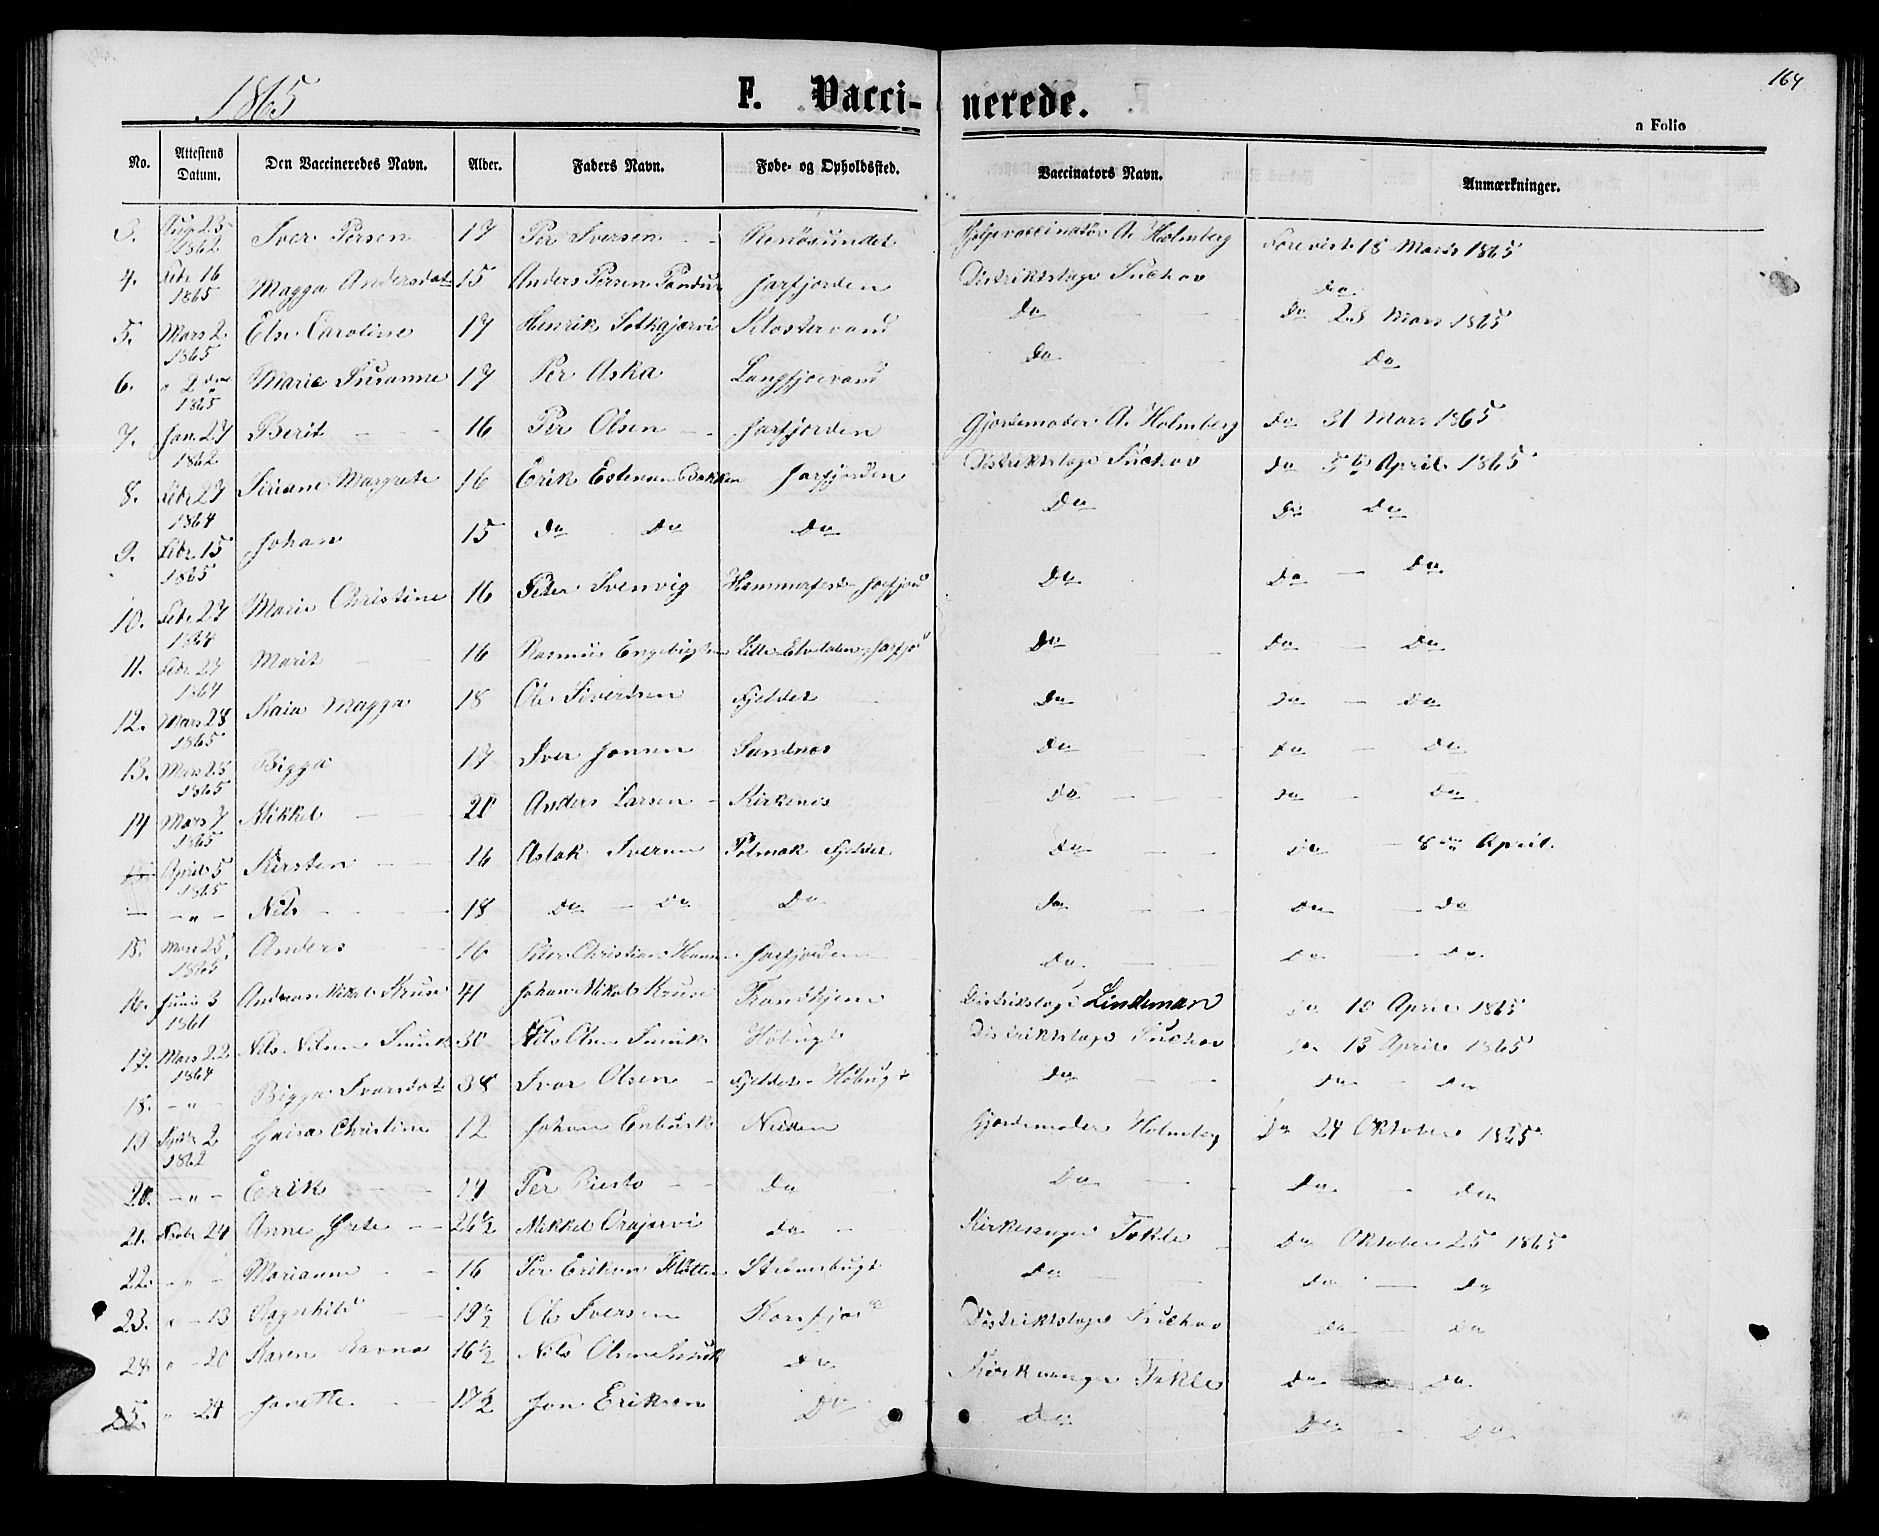 1865
F. Vacci- nerede.
164
a Folio
No. Attestens Datum. Den Vaccineredes Navn. Alder. Faders Navn. Føde- og Opholdssted. Vaccinators Navn. Anmærkninger.
1862 Iver Persen 17 Per Iversen Renøsundet Holmberg Forevist 18 Marts 1865
4. Feb. 16 1865 Magga Andersdat 15 Anders Persen Jarfjorden Distriktslæge Do
5. Mars 2 1865 Else Caroline 17 Henrik Klostervand Do Do 23 Mars 1865
6. " 2 1865 Marie Susanne 17 Per Aska Langfjorvand Do Do
7. Jan. 27 1862 Berit 16 Per Olsen Jarfjorden Gjordemoder A. Holmberg Do 31 Mars 1865
8. Feb. 27 1864 Margrete 16 Erik Estensen Bakken Jarfjorden Distriktslæge Do 5 April 1865
9. Feb. 15 1865 Johan 15 Do Do Do Do Do Do
10. Feb. 27 1864 Marie Christine 16 Peter Svenvig Hammerfest Jarfjord Do Do Do
11. Feb. 27 1864 Marit 16 Rasmus Engebrigtsen Do Do Do
12. Mars 28 1865 Kaia Magga 18 Ole Sivertsen Fjeldet Do Do Do
13. Mars 28 1865 Bigga 17 Iver Jonsen Sandnes Do Do Do
14 Mars 7 1865 Mikkel 20 Anders Larsen Kirkenes Do Do Do
April 5 1865 Kirsten 16 Aslak Iversen Polmak Fjeldet Do Do 8 April.
— " — Nils 18 Do Do Do Do Do Do
15. Mars 25 1865 Anders 16 Peter Christian Jarfjorden Do Do Do
16. Juni 3 1861 Andreas Nikolai Kruse 41 Johan Nikolai Kruse Trondhjem Distriktslæge Lindeman Do 10 April 1865
17. Mars 22 1864 Nils Nilsen 30 Nils Olsen Høbugt Distriktslæge Do 13 April 1865
18. — " — Bigga Ivarsdat 38 Ivar Olsen Fjeldet Høbugt Do Do Do
19 2 1862 Christine 12 Johan Enbusk Neiden Gjordemoder Holmberg Do 24 Oktober 1865
20. — " — Erik 14 Per Do Do Do Do
21. 24 Anne Grete 26½ Mikkel Orajærvi Do Kirkesanger Tokle Do Oktober 25 1865
22. — " — Marianne 16 Per Eriksen Strømsbugt Do Do Do
23. " — 13 Ragnhild 19½ Ole Iversen Korsfjor Distriktslæge Do Do
24. " — 20 Karen Ravna 16½ Nils Olsen Do Kirkesanger Tokle Do Do
25. " 24 Janette 17½ Jon Eriksen Do Do Do Do